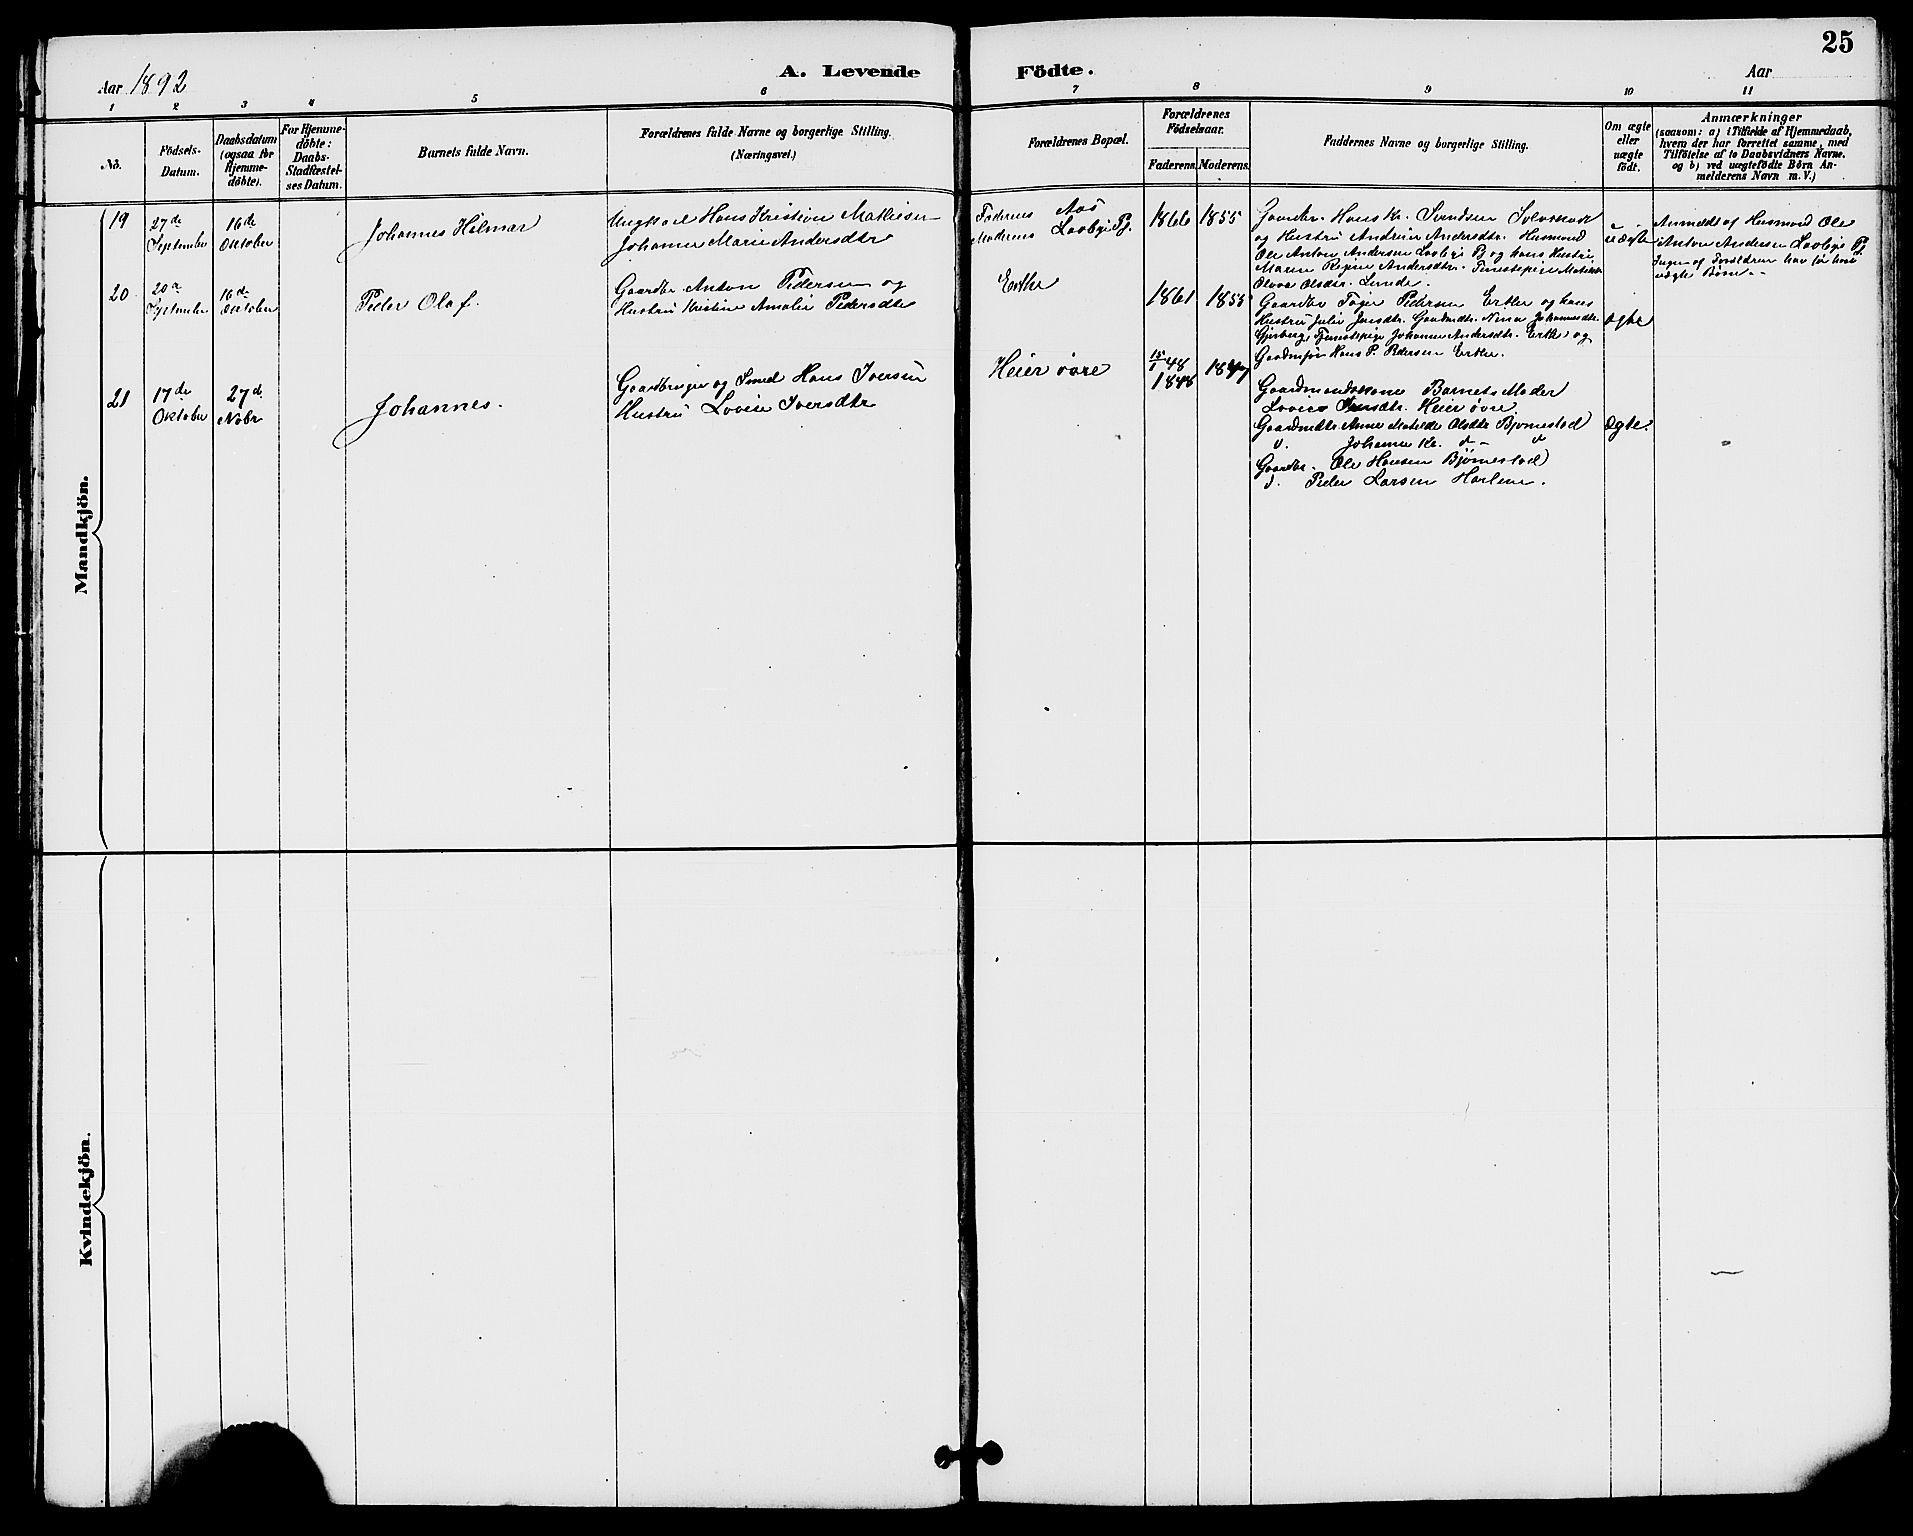 25
Aar 1892
A. Levende
Födte.
Aar
1 2 3 4 5 6 7 8 9 10 11
No.
Födsels-
Datum.
Daabsdatum
(ogsaa for
Hjemme-
döbte).
For Hjemme-
döbte:
Daabs-
Stadfæstel-
ses Datum.
Barnets fulde Navn.
Forældrenes fulde Navne og borgerlige Stilling.
(Næringsvei.)
Forældrenes Bopæl.
Forældrenes
Födselsaar.
Faderens. Moderens.
Faddernes Navne og borgerlige Stilling.
Om ægte
eller
uægte
født.
Anmærkninger
(saasom: a) i Tilfælde af Hjemmedaab,
hvem der har forrettet samme, med
Tilføielse af to Daabsvidners Navne.
og b) ved uægtefødte Börn An-
melderens Navn m. V.)
Mandkjön.
19
27de
September
16de
Oktober
Johannes Hilmar
Ungkarl Hans Kristian Mathisen
Johanne Marie Andersdtr
Faderens Aas
Moderens
1866
1855
Gaardbr. Hans Kr. Svendsen
og Hustru Andrine Andersdtr. Husmand
Ole Anton Andersen og hans Hustru
Maren Regine Andersdtr. Tjenestepige
Olava Olsdtr. Lunde.
uægte
Anmeldt af Husmand Ole
Anton Andersen
Ingen af Forældrene har før havt
uægte Børn
20
20de
September
16de
Oktober
Peder Olaf.
Gaardbr. Anton Pedersen og
Hustru Kristine Amalie Pedersdtr
Ertke
1861
1855
Gaardbr Pedersen og hans
Hustru Julie Jensdtr. Gaardmdtr. Johannesdtr.
Tjenestepige Johanne Andersdtr. og
Hans P. Pedersen
ægte
21
17de
Oktober
27de
Novbr
Johannes.
Gaardbruger og Smed Hans Iversen
Hustru Lovise Iversdtr
Heier øvre
15/1 48
1848
1847
Gaardmandskone Barnets Moder
Lovise Iversdtr. Heier øvre.
Gaardmdtr. Anne Matilde Olsdtr Bjørnestad
d. Johanne Kr. d - d
Gaardbr. Ole Hansen Bjørnestad
d. Peder Larsen
ægte.
Kvindekjön.